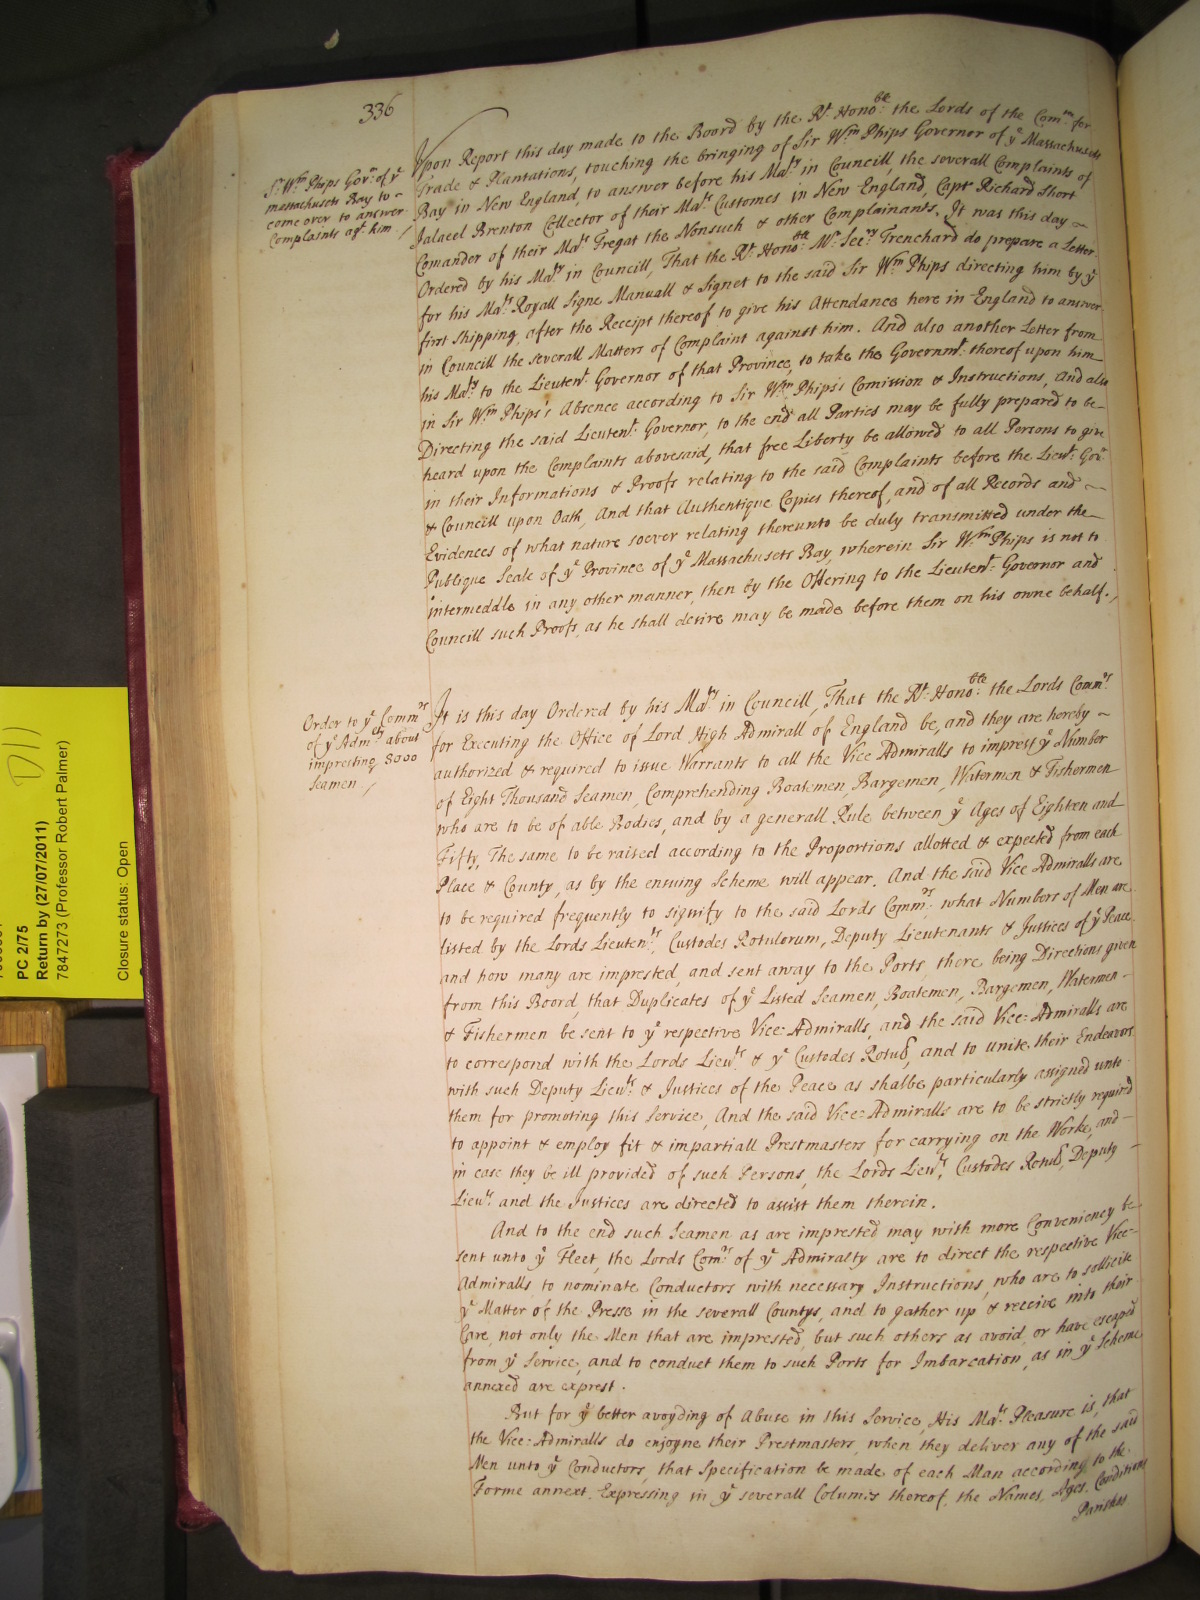 336
Sr. Wm Phips Govr. of ye
Massachusets Bay to
come over to answer
Complaints agt. him
Upon Report this day made to the Board by the Rt. Honoble: the Lords of the Comrs for
Trade & Plantations, touching the bringing of Sir Wm Phips Governor of ye Massachusets
Bay in New England, to answer before his Maty in Councill, the severall Complaints of
Jalaeel Brenton Collector of their Mats Customes in New England, Capt Richard Short
Comander of their Mats Fregat the Nonsuch & other Complainants. It was this day
Ordered by his Maty in Councill, That the Rt. Honoble: Mr. Secry Trenchard do prepare a Letter
for his Mats Royall Signe Manuall & Signet to the said Sir Wm Phips directing him by ye
first Shipping, after the Receipt thereof to give his Attendance here in England to answer
in Councill the severall Matters of Complaint against him. And also another Letter from
his Maty to the Lieutent. Governor of that Province, to take the Governmt: thereof upon him
in Sir Wm Phips's Absence according to Sir Wm Phips's Comission & Instructions, And also
Directing the said Lieutent. Governor, to the end all Parties may be fully prepared to be
heard upon the Complaints abovesaid, that free Liberty be allowed to all Persons to give
in their Informations & Proofs relating to the said Complaints before the Lieut: Govr
& Councill upon Oath, And that Authentique Copies thereof, and of all Records and
Evidences of what nature soever relating thereunto be duly transmitted under the
Publique Seale of ye Province of ye Massachusets Bay, wherein Sir Wm Phips is not to
intermeddle in any other manner, then by the Offering to the Lieutent: Governor and
Councill such Proofs, as he shall desire may be made before them on his owne behalf.
Order to ye Commrs
of ye Admlty about
impresting 8000
Seamen
It is this day Ordered by his Maty in Councill, That the Rt. Honoble: the Lords Commrs
for Executing the Office of Lord High Admirall of England be, and they are hereby
authorized & required to issue Warrants to all the Vice Admiralls to impress ye Number
of Eight Thousand Seamen, Comprehending Boatemen, Bargemen, Watermen & Fishermen
who are to be of able Bodies, and by a generall Rule between ye Ages of Eighteen and
Fifty, The same to be raised according to the Proportions allotted & expected from each
Place & County, as by the ensuing Scheme will appear. And the said Vice Admiralls are
to be required frequently to signify to the said Lords Commrs: what Numbers of Men are
listed by the Lords Lieutents, Custodes Rotulorum, Deputy Lieutenants & Justices of ye Peace
and how many are imprested, and sent away to the Ports, there being Directions given
from this Board, that Duplicates of ye Listed Seamen, Boatemen, Bargemen, Watermen
& Fishermen be sent to ye respective Vice-Admiralls, and the said Vice-Admiralls are
to correspond with the Lords Lieuts & ye Custodes Rotul, and to unite their Endeavors
with such Deputy Lieuts & Justices of the Peace as shalbe particularly assigned unto
them for promoting this Service, And the said Vice-Admiralls are to be strictly required
to appoint & employ fit & impartiall Prestmasters for carrying on the Worke, and
in case they be ill provided of such Persons, the Lords Lieuts, Custodes Rotul, Deputy
Lieuts and the Justices are directed to assist them therein.
And to the end such Seamen as are imprested may with more Conveniency be
sent unto ye Fleet, the Lords Comrs of ye Admiralty are to direct the respective Vice-
Admiralls to nominate Conductors with necessary Instructions, who are to sollicite
ye Matter of the Presse in the severall Countys, and to gather up & receive into their
Care, not only the Men that are imprested, but such others as avoid, or have escaped
from ye Service, and to conduct them to such Ports for Imbarcation, as in ye Scheme
annexed are exprest.
But for ye better avoyding of Abuse in this Service, His Mats Pleasure is, that
the Vice-Admiralls do enjoyne their Prestmasters, when they deliver any of the said
Men unto ye Conductors, that Specification be made of each Man according to the
Forme annext, Expressing in ye severall Columes thereof, the Names, Ages, Conditions
Parishes
PC 2/75
Return by (27/07/2011)
7847273 (Professor Robert Palmer)
Closure status: Open